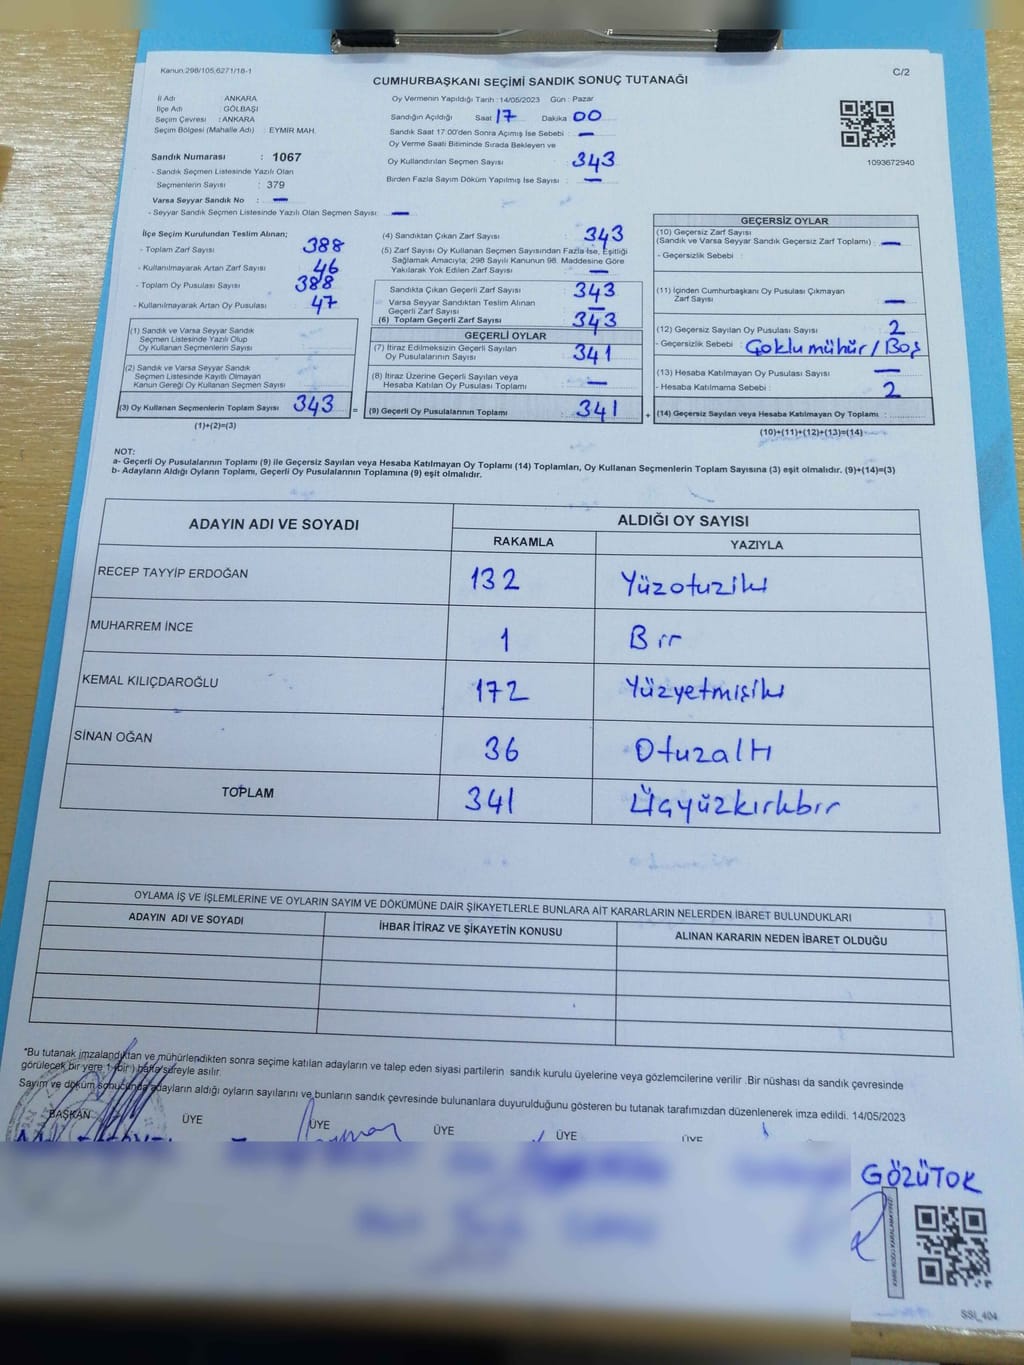 Kanun:298/105,6271/18-1
C/2
CUMHURBAŞKANI SEÇİMİ SANDIK SONUÇ TUTANAĞI
İl Adı : ANKARA
İlçe Adı : GÖLBAŞI
Seçim Çevresi : ANKARA
Seçim Bölgesi (Mahalle Adı) : EYMİR MAH.
Sandık Numarası : 1067
- Sandık Seçmen Listesinde Yazılı Olan
Seçmenlerin Sayısı : 379
Varsa Seyyar Sandık No : —
- Seyyar Sandık Seçmen Listesinde Yazılı Olan Seçmen Sayısı: —
Oy Vermenin Yapıldığı Tarih : 14/05/2023 Gün : Pazar
Sandığın Açıldığı Saat 17 Dakika 00
Sandık Saat 17.00'den Sonra Açımış İse Sebebi : —
Oy Verme Saati Bitiminde Sırada Bekleyen ve
Oy Kullandırılan Seçmen Sayısı 343
Birden Fazla Sayım Döküm Yapılmış İse Sayısı : —
1093672940
İlçe Seçim Kurulundan Teslim Alınan;
- Toplam Zarf Sayısı 388
- Kullanılmayarak Artan Zarf Sayısı 46
- Toplam Oy Pusulası Sayısı 388
- Kullanılmayarak Artan Oy Pusulası 47
(1) Sandık ve Varsa Seyyar Sandık
Seçmen Listesinde Yazılı Olup
Oy Kullanan Seçmenlerin Sayısı :
(2) Sandık ve Varsa Seyyar Sandık
Seçmen Listesinde Kayıtlı Olmayan
Kanun Gereği Oy Kullanan Seçmen Sayısı :
(3) Oy Kullanan Seçmenlerin Toplam Sayısı 343 =
(1)+(2)=(3)
(4) Sandıktan Çıkan Zarf Sayısı : 343
(5) Zarf Sayısı Oy Kullanan Seçmen Sayısından Fazla İse, Eşitliği
Sağlamak Amacıyla; 298 Sayılı Kanunun 98. Maddesine Göre
Yakılarak Yok Edilen Zarf Sayısı : —
Sandıkta Çıkan Geçerli Zarf Sayısı : 343
Varsa Seyyar Sandıktan Teslim Alınan
Geçerli Zarf Sayısı : —
(6) Toplam Geçerli Zarf Sayısı : 343
GEÇERLİ OYLAR
(7) İtiraz Edilmeksizin Geçerli Sayılan
Oy Pusulalarının Sayısı : 341
(8) İtiraz Üzerine Geçerli Sayılan veya
Hesaba Katılan Oy Pusulası Toplamı : —
(9) Geçerli Oy Pusulalarının Toplamı : 341 +
GEÇERSİZ OYLAR
(10) Geçersiz Zarf Sayısı
(Sandık ve Varsa Seyyar Sandık Geçersiz Zarf Toplamı) : —
- Geçersizlik Sebebi :
(11) İçinden Cumhurbaşkanı Oy Pusulası Çıkmayan
Zarf Sayısı : —
(12) Geçersiz Sayılan Oy Pusulası Sayısı : 2
- Geçersizlik Sebebi : Çoklu mühür / Boş
(13) Hesaba Katılmayan Oy Pusulası Sayısı : —
- Hesaba Katılmama Sebebi : 2
(14) Geçersiz Sayılan veya Hesaba Katılmayan Oy Toplamı :
(10)+(11)+(12)+(13)=(14)
NOT:
a- Geçerli Oy Pusulalarının Toplamı (9) ile Geçersiz Sayılan veya Hesaba Katılmayan Oy Toplamı (14) Toplamları, Oy Kullanan Seçmenlerin Toplam Sayısına (3) eşit olmalıdır. (9)+(14)=(3)
b- Adayların Aldığı Oyların Toplamı, Geçerli Oy Pusulalarının Toplamına (9) eşit olmalıdır.
ADAYIN ADI VE SOYADI
ALDIĞI OY SAYISI
RAKAMLA YAZIYLA
RECEP TAYYİP ERDOĞAN 132 Yüzotuziki
MUHARREM İNCE 1 Bir
KEMAL KILIÇDAROĞLU 172 Yüzyetmişiki
SİNAN OĞAN 36 Otuzaltı
TOPLAM 341 Üçyüzkırkbir
OYLAMA İŞ VE İŞLEMLERİNE VE OYLARIN SAYIM VE DÖKÜMÜNE DAİR ŞİKAYETLERLE BUNLARA AİT KARARLARIN NELERDEN İBARET BULUNDUKLARI
ADAYIN ADI VE SOYADI İHBAR İTİRAZ VE ŞİKAYETİN KONUSU ALINAN KARARIN NEDEN İBARET OLDUĞU
*Bu tutanak imzalandıktan ve mühürlendikten sonra seçime katılan adayların ve talep eden siyasi partilerin sandık kurulu üyelerine veya gözlemcilerine verilir .Bir nüshası da sandık çevresinde
görülecek bir yere 1 (bir ) hafta süreyle asılır.
Sayım ve döküm sonucunda adayların aldığı oyların sayılarını ve bunların sandık çevresinde bulunanlara duyurulduğunu gösteren bu tutanak tarafımızdan düzenlenerek imza edildi. 14/05/2023
BAŞKAN ÜYE ÜYE ÜYE ÜYE ÜYE
GÖZÜTOK
SSI_404